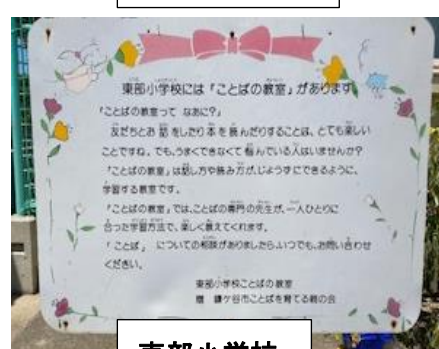 東部小学校には「ことばの教室」があります
「ことばの教室って なあに？」
友だちとお話をしたり本を読んだりすることは、とても楽しい
ことですね。でも、うまくできなくて悩んでいる人はいませんか？
「ことばの教室」は話し方や読み方が、じょうずにできるように、
学習する教室です。
「ことばの教室」では、ことばの専門の先生が、一人ひとりに
合った学習方法で、楽しく教えてくれます。
「ことば」 についての相談がありましたら、いつでも、お問い合わせ
ください。
東部小学校ことばの教室
贈 鎌ケ谷市ことばを育てる親の会
東部小学校